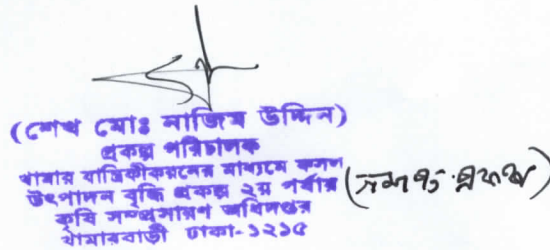 (শেখ মোঃ নাজিম উদ্দিন)
প্রকল্প পরিচালক
খামার যান্ত্রিকীকরনের মাধ্যমে ফসল
উৎপাদন বৃদ্ধি প্রকল্প ২য় পর্যায়
কৃষি সম্প্রসারণ অধিদপ্তর
খামারবাড়ী ঢাকা-১২১৫